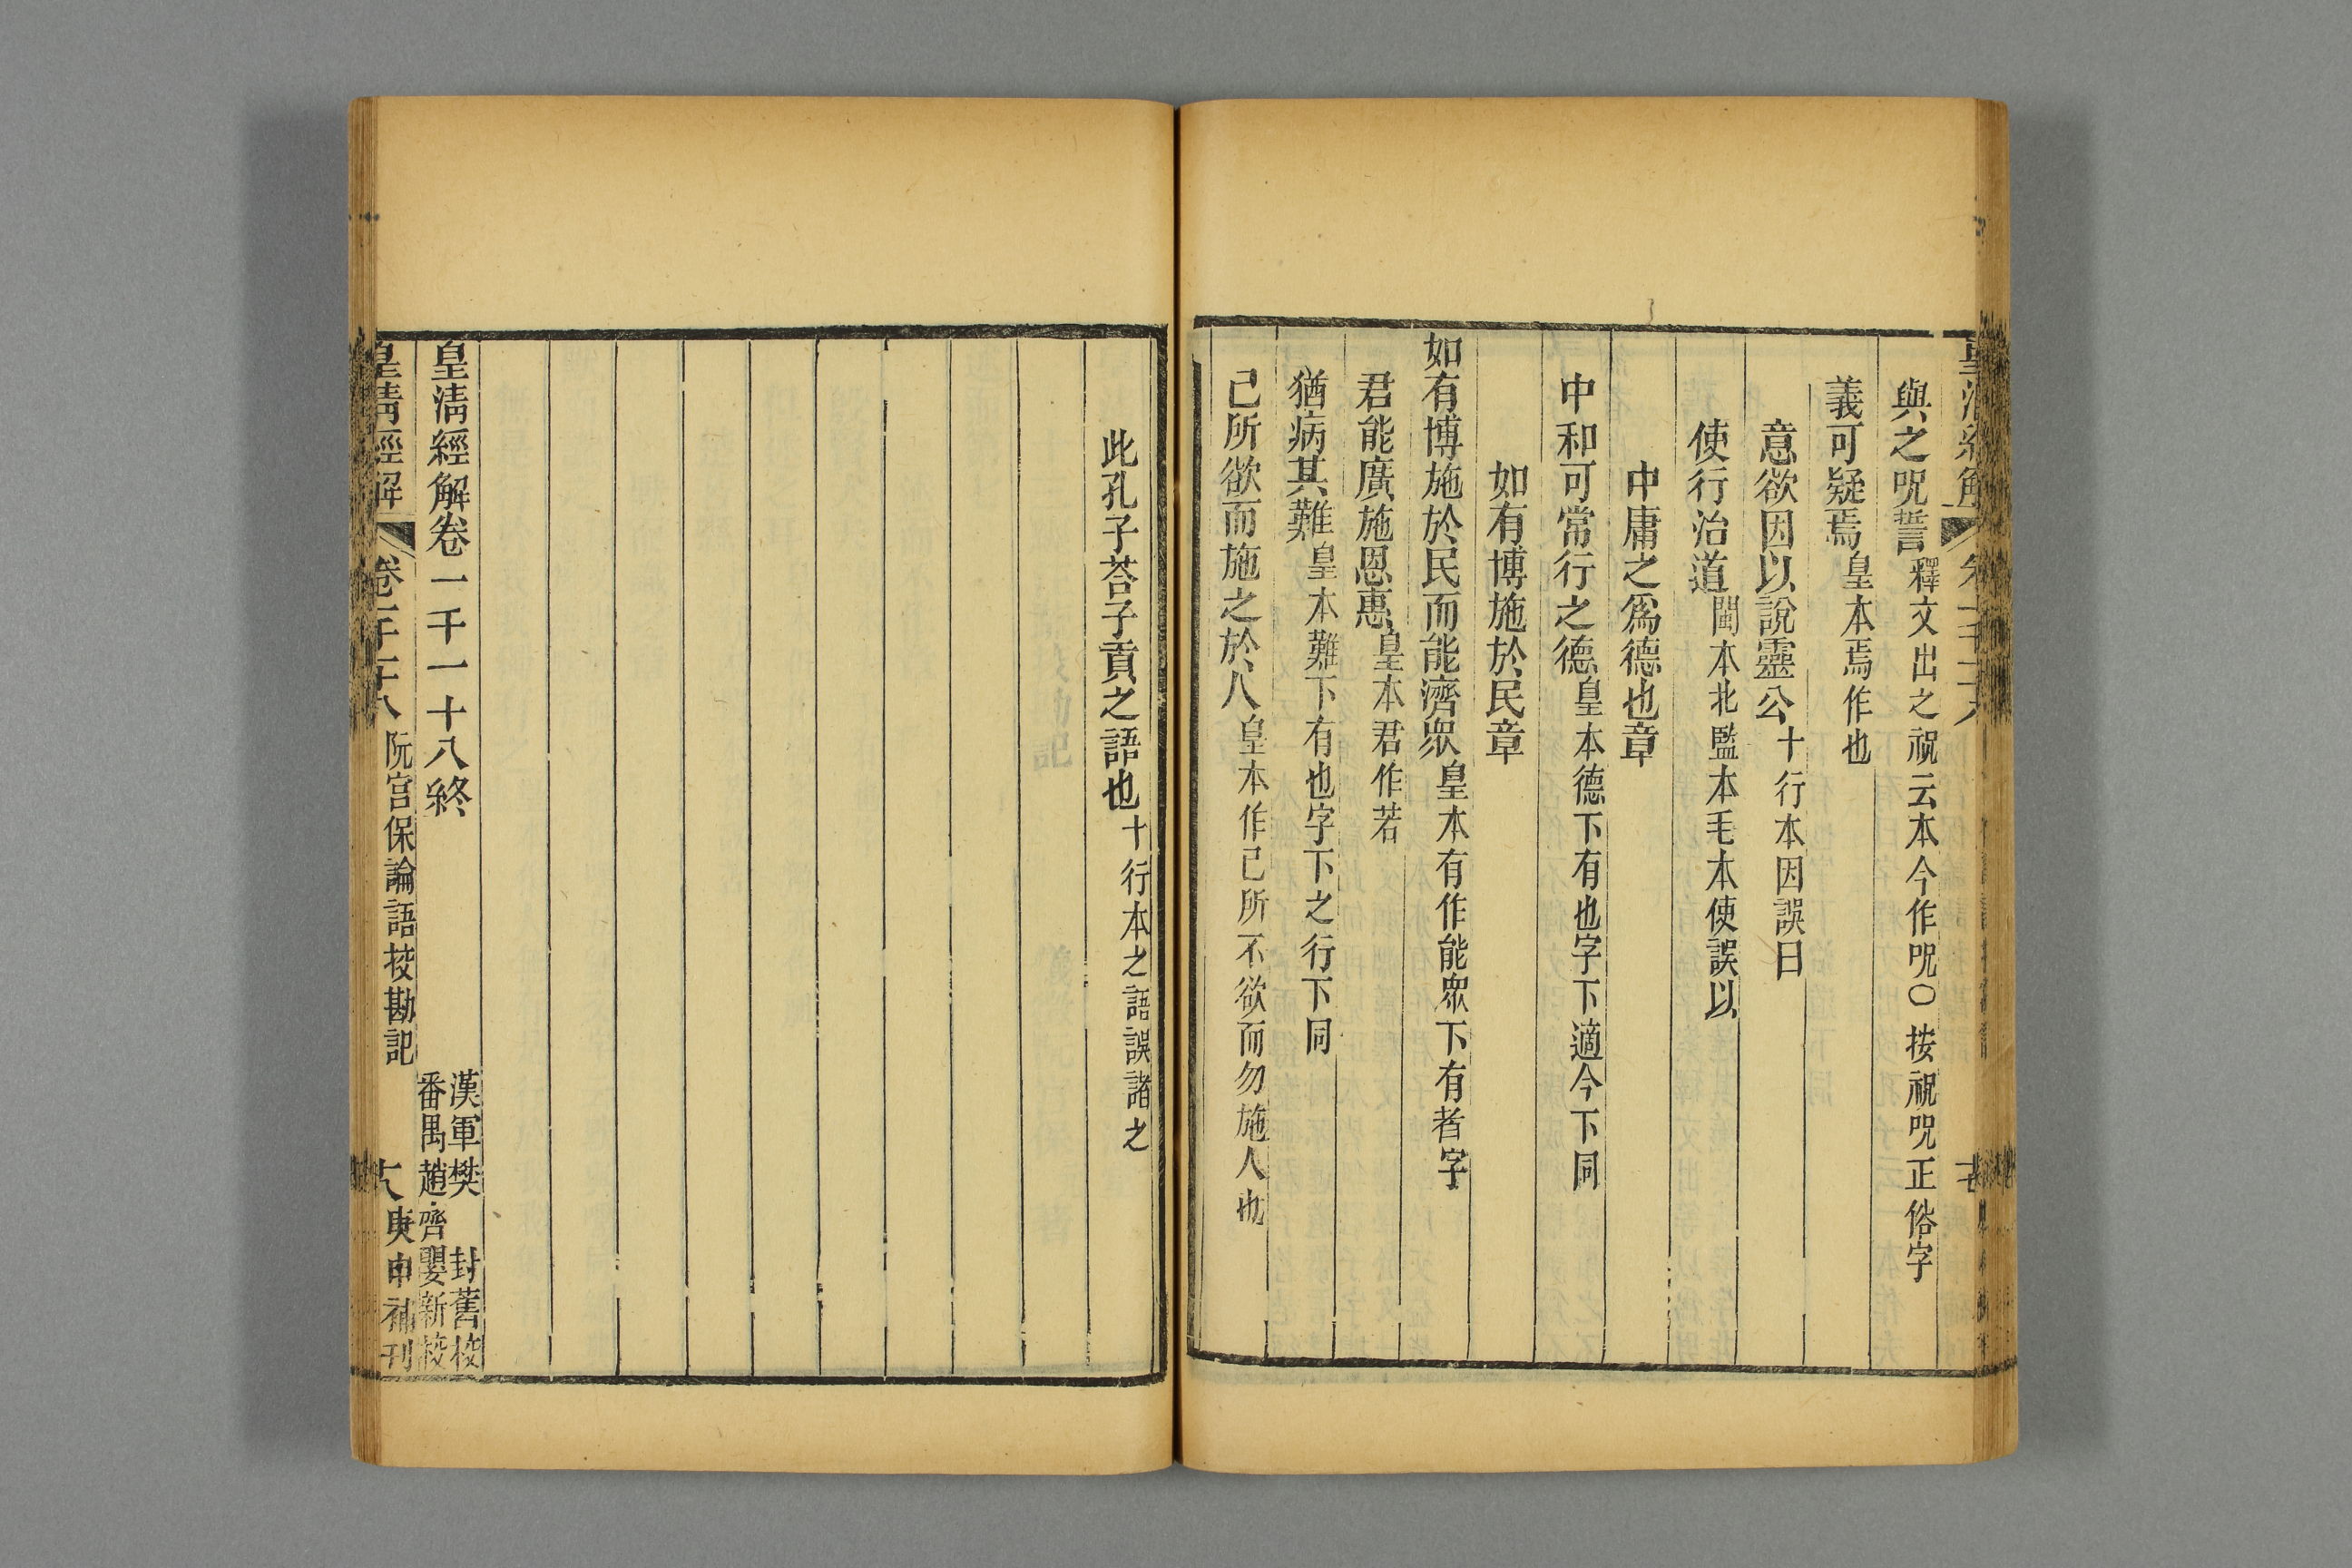 與之呪誓釋文出之祝云本今作呪〇按祝呪正俗字
義可疑焉皇本焉作也
意欲因以說靈公十行本因誤曰
使行治道閩本北監本毛本使誤以
中庸之爲德也章
中和可常行之德皇本德下有也字下適今下同
如有博施於民章
如有博施於民而能濟眾皇本有作能眾下有者字
君能廣施恩惠皇本君作若
猶病其難皇本難下有也字下之行下同
己所欲而施之於人皇本作己所不欲而勿施人也
此孔子荅子貢之語也十行本之語誤諸之
皇淸經解卷一千一十八終
漢軍樊封舊校
番禺趙齊嬰新校
皇淸經解 卷一千一十八 阮宮保論語挍勘記 十八 庚申補刊